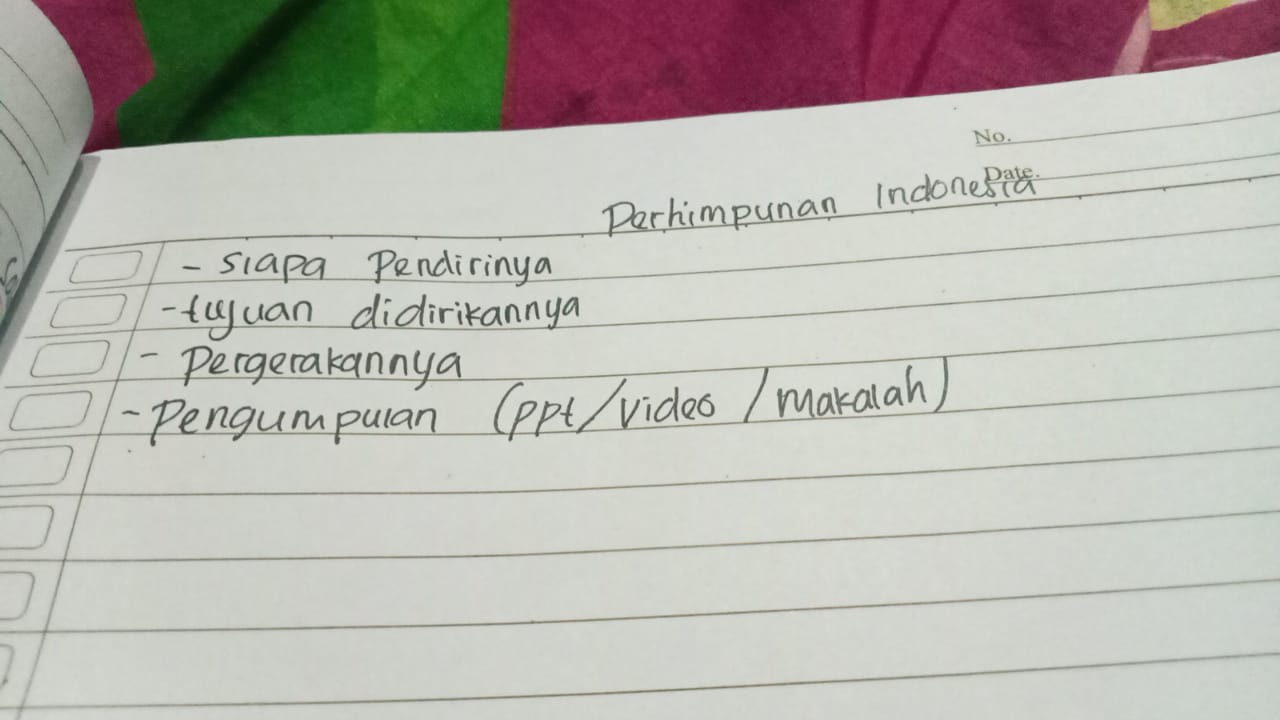 No.
Date.
Perhimpunan Indonesia
- siapa Pendirinya
- tujuan didirikannya
- Pergerakannya
- Pengumpulan (ppt/video/makalah)